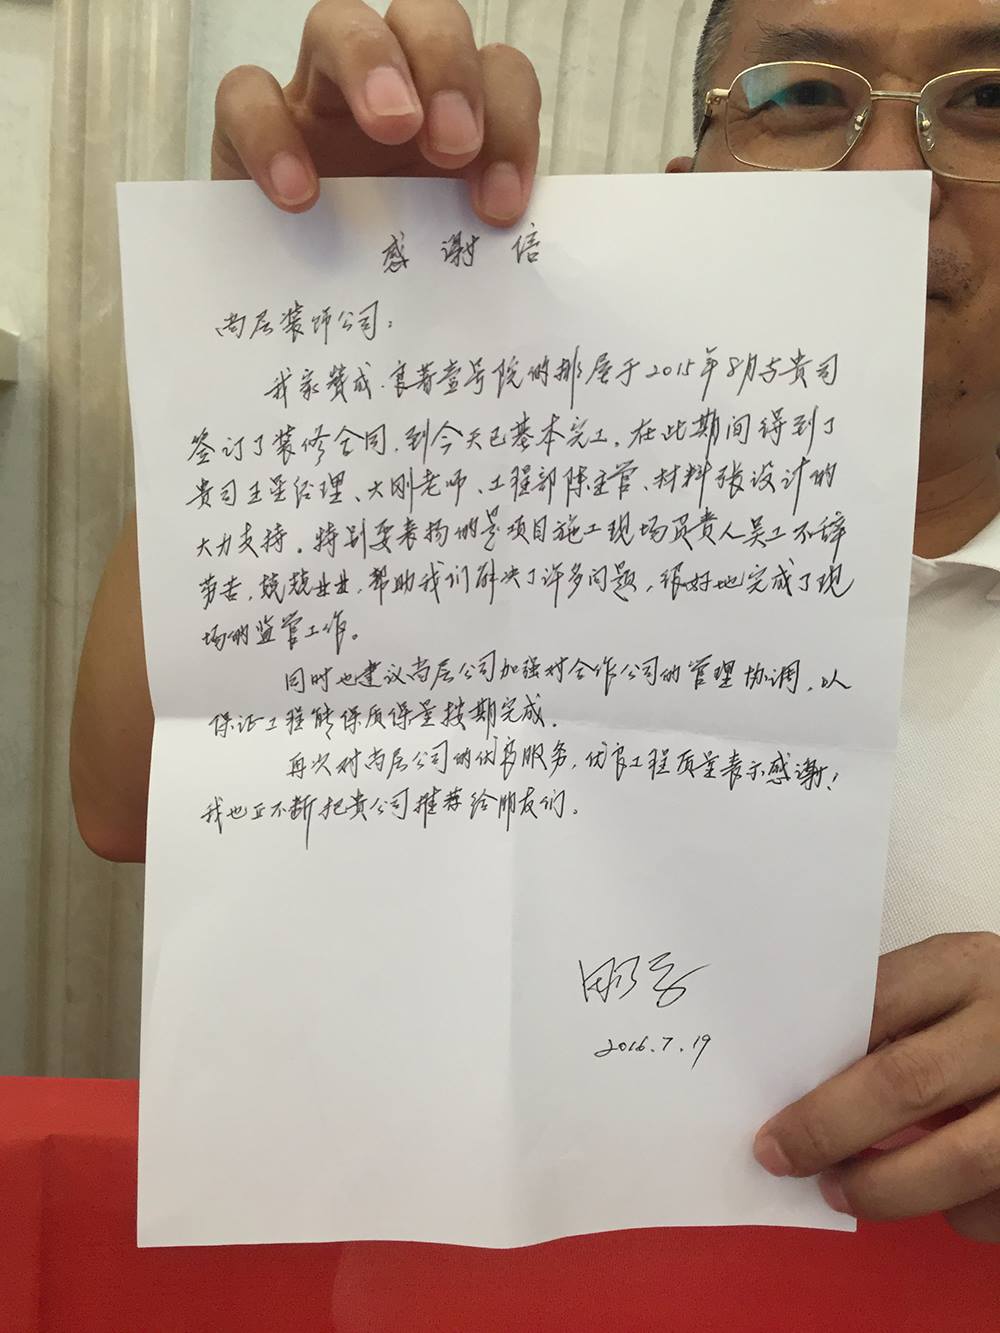 感谢信
尚层装饰公司:
我家赞成·良著壹号院的排屋于2015年8月与贵司
签订了装修合同,到今天已基本完工,在此期间得到了
贵司王星经理、大刚老师、工程部陈主管、材料张设计的
大力支持。特别要表扬的是项目施工现场负责人吴工不辞
劳苦,兢兢业业,帮助我们解决了许多问题,很好地完成了现
场的监管工作。
同时也建议尚层公司加强对合作公司的管理协调,以
保证工程能保质保量按期完成.
再次对尚层公司的优质服务,优良工程质量表示感谢!
我也正不断把贵公司推荐给朋友们。
2016.7.19